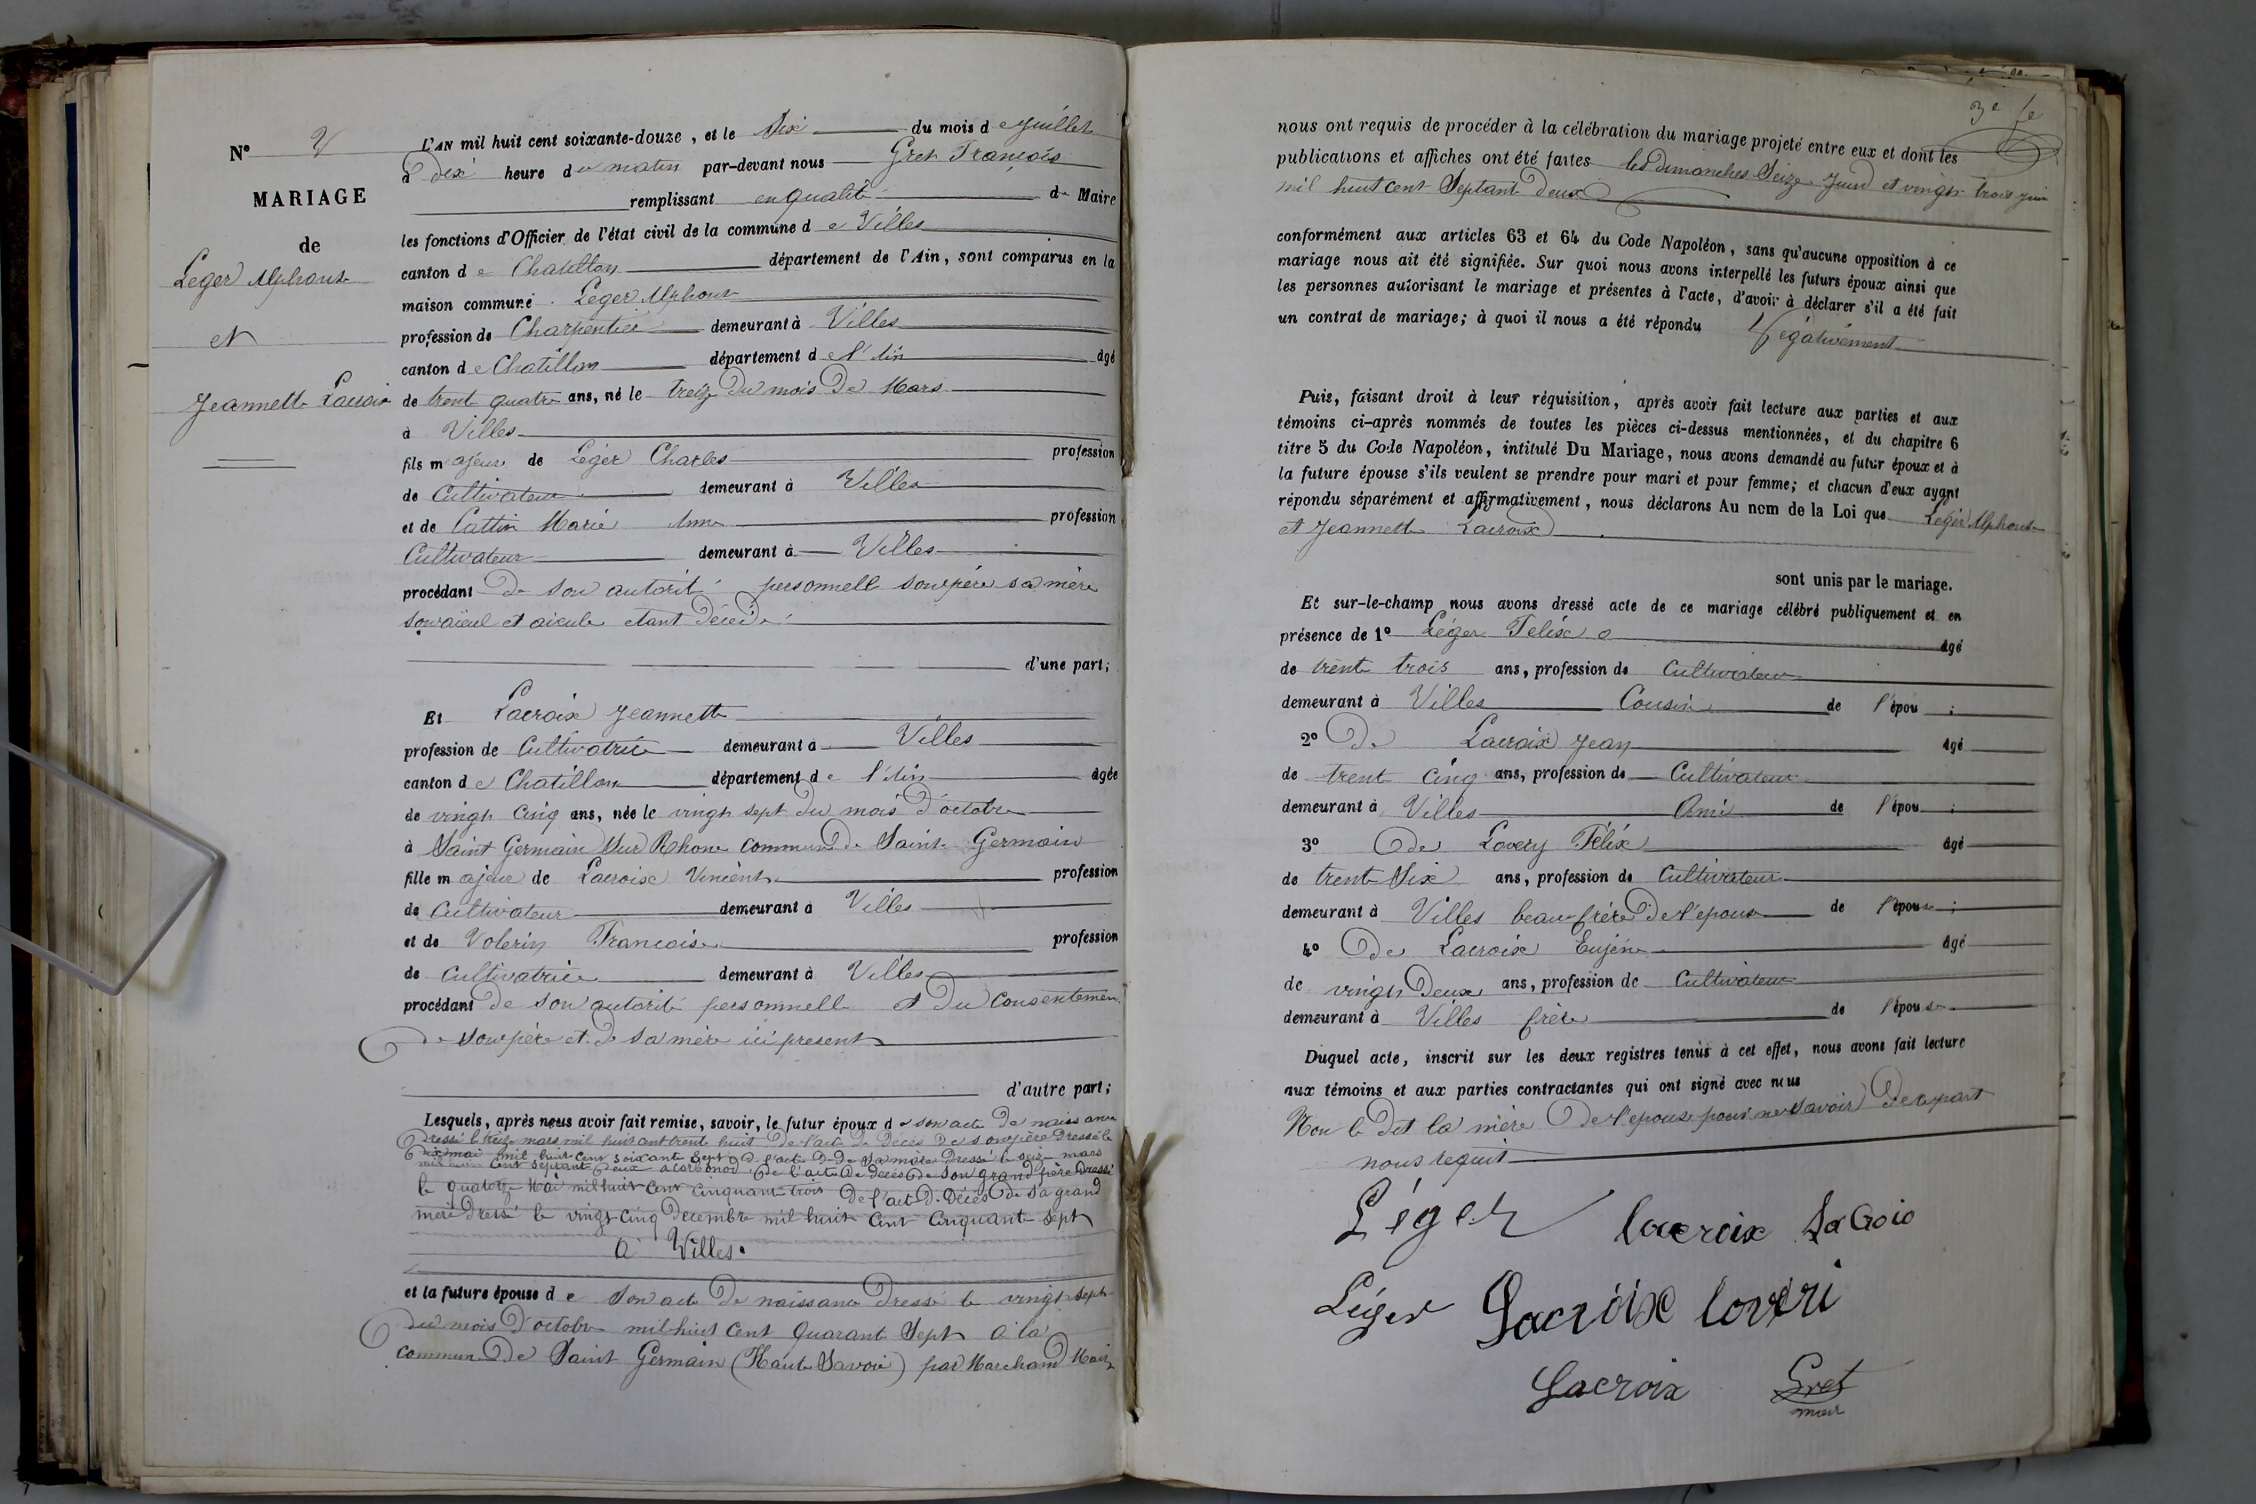 N° 2
MARIAGE
de
Leger Alphonse
et
Jeannette Lacroix
L'AN mil huit cent soixante-douze, et le Six du mois de Juillet
à dix heure du matin par-devant nous Gret François
remplissant en qualité de Maire
les fonctions d'Officier de l'état civil de la commune de Villes
canton de Chatillon département de l'Ain, sont comparus en la
maison commune. Leger Alphonse
profession de Charpentier demeurant à Villes
canton de Chatillon département de l'Ain âgé
de trent quatre ans, né le treize du mois de Mars
à Villes
fils majeur de Léger Charles profession
de Cultivateur demeurant à Villes
et de Cattin Marie Anne profession
Cultivateur demeurant à Villes
procédant de son autorité personnelle son père sa mère
son aïeul et aieule etant Décédé
d'une part;
Et Lacroix Jeannette
profession de Cultivatrice demeurant à Villes
canton de Chatillon département de l'Ain âgée
de vingt cinq ans, née le vingt sept du mois d'octobre
à Saint Germain Sur Rhone commune de Saint Germain
fille majeure de Lacroix Vincent profession
de Cultivateur demeurant à Villes
et de Volerin Francoise profession
de cultivatrice demeurant à Villes
procédant de son autorité personnelle et du consentement
de son père et de sa mère ici present
d'autre part;
Lesquels, après nous avoir fait remise, savoir, le futur époux de son acte de naissance
dressé le treize mars mil huit cent trente huit de l'acte de décès de son père dressé le
mai mil huit cent soixante sept de l'acte de de sa mère dressé le seize mars
mil huit cent septante deux a de l'acte de décès de son grand père dressé
le quatorze mai mil huit cent cinquante trois de l'acte de Décès de sa grand
mère dressé le vingt cinq decembre mil huit cent cinquante sept
à Villes.
et la future épouse de son acte de naissance dressé le vingt sept
du mois d'octobre mil huit cent quarante sept à la
commune de Saint Germain (Haute Savoie) par Marchand Maire
3e fe
nous ont requis de procéder à la célébration du mariage projeté entre eux et dont les
publications et affiches ont été faites les dimanches Seize Juin et vingt trois juin
mil huit cent Septante deux
conformément aux articles 63 et 64 du Code Napoléon, sans qu'aucune opposition à ce
mariage nous ait été signifiée. Sur quoi nous avons interpellé les futurs époux ainsi que
les personnes autorisant le mariage et présentes à l'acte, d'avoir à déclarer s'il a été fait
un contrat de mariage; à quoi il nous a été répondu Négativement
Puis, faisant droit à leur réquisition, après avoir fait lecture aux parties et aux
témoins ci-après nommés de toutes les pièces ci-dessus mentionnées, et du chapitre 6
titre 5 du Code Napoléon, intitulé Du Mariage, nous avons demandé au futur époux et à
la future épouse s'ils veulent se prendre pour mari et pour femme; et chacun d'eux ayant
répondu séparément et affirmativement, nous déclarons Au nom de la Loi que Leger Alphonse
et Jeannette Lacroix
sont unis par le mariage.
Et sur-le-champ nous avons dressé acte de ce mariage célébré publiquement et en
présence de 1° Léger Felix âgé
de trente trois ans, profession de Cultivateur
demeurant à Villes Cousin de l'épou ;
2° De Lacroix Jean âgé
de trent cinq ans, profession de Cultivateur
demeurant à Villes Ami de l'épou ;
3° de Lovery Félix âgé
de trent Six ans, profession de Cultivateur
demeurant à Villes beau frère de l'epouse de l'épouse ;
4° De Lacroix Eujéne âgé
de vingt Deux ans, profession de Cultivateur
demeurant à Villes frère de l'épouse
Duquel acte, inscrit sur les deux registres tenus à cet effet, nous avons fait lecture
aux témoins et aux parties contractantes qui ont signé avec nous
Non le dit la mère de l'epouse pour ne savoir de apart
nous requit
Léger lacroix LaCroix
Léger Lacroix lovéri
Lacroix Gret
maire